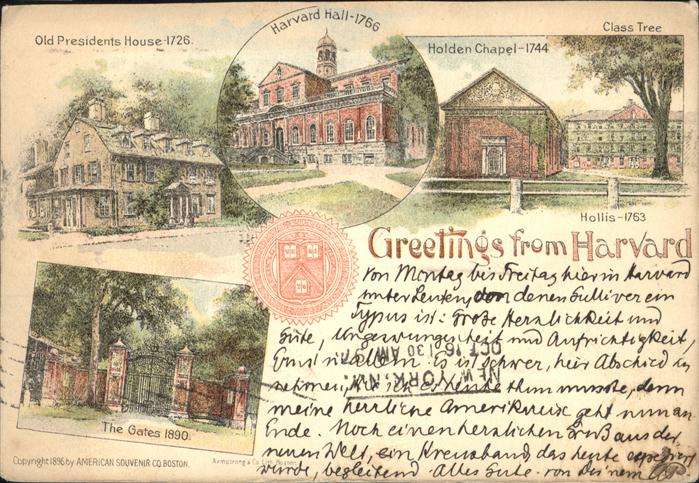 Old Presidents House-1726.
Harvard Hall-1766
Holden Chapel-1744
Class Tree
Hollis-1763
Greetings from Harvard
von Montag bis Freitag hier in Harvard
unter Leuten, von denen Gulliver ein
Typus ist: Große Herzlichkeit und
Güte, Ungezwungenheit und Aufrichtigkeit,
Ernst in allem. Es ist schwer, hier Abschied zu
nehmen, ich es heute thun musste, denn
meine herrliche Amerikareise geht nun an
Ende. Noch einen herzlichen Gruß aus der
neuen Welt, ein Kreuzband, das heute
wurde, begleitend. Alles Gute von Deinem
NEW YORK, N.Y.
OCT 16 1 30 AM 97
The Gates 1890.
Copyright 1896 by AMERICAN SOUVENIR CO. BOSTON.
Armstrong & Co. Lith. Boston